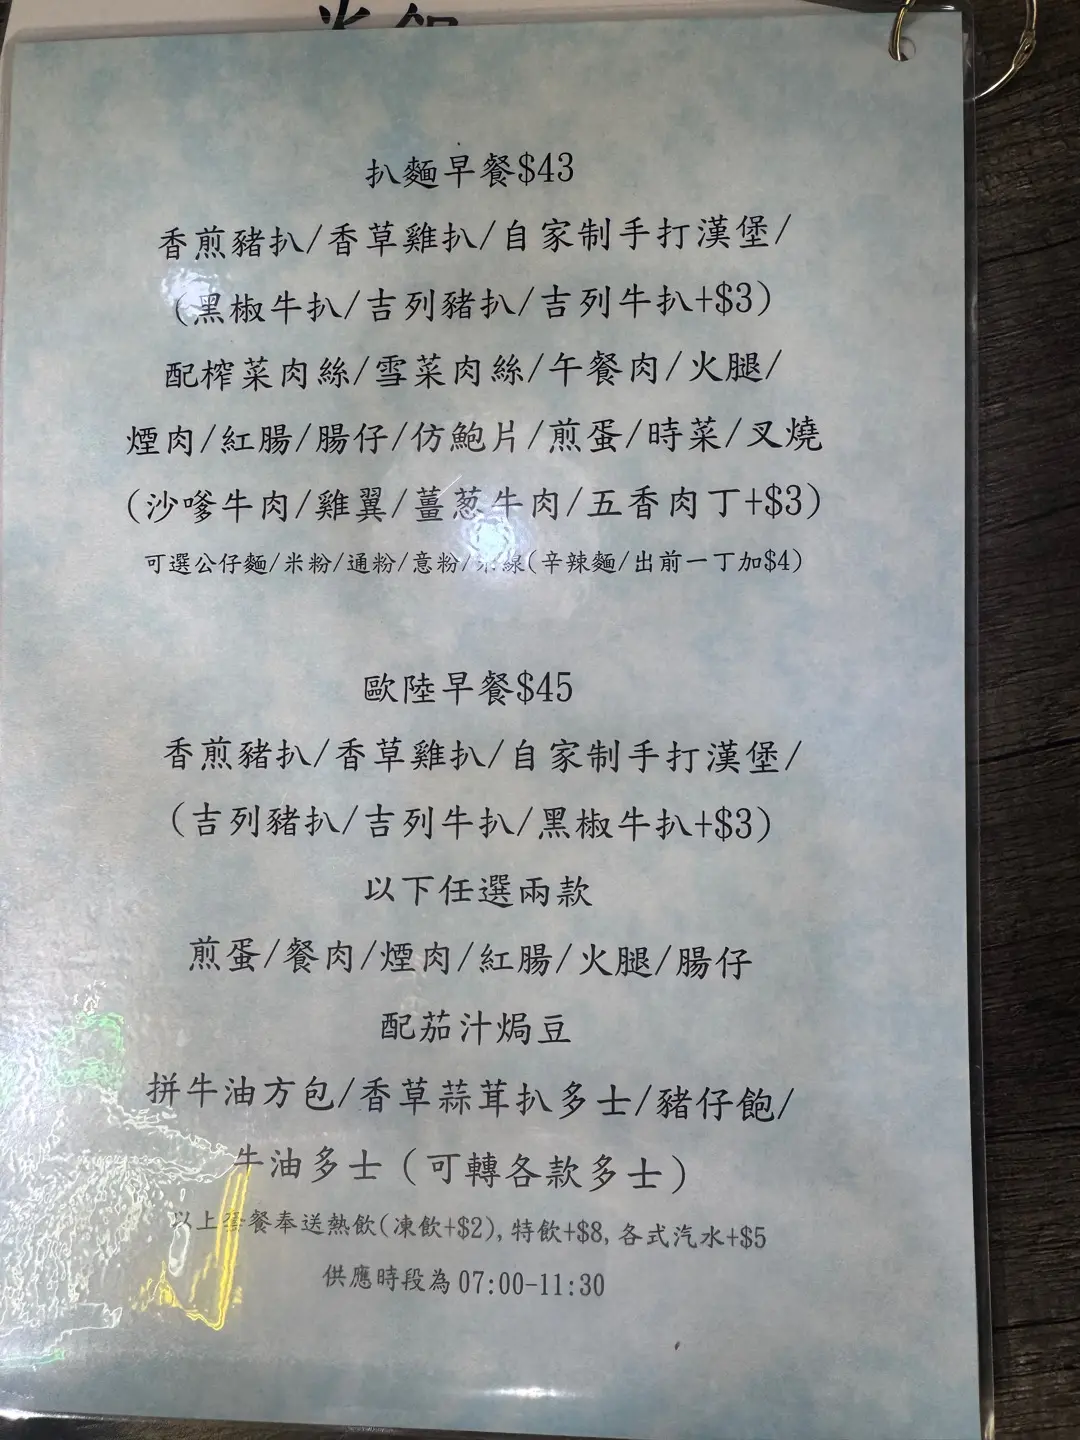 扒麵早餐$43
香煎豬扒/香草雞扒/自家制手打漢堡/
(黑椒牛扒/吉列豬扒/吉列牛扒+$3)
配榨菜肉絲/雪菜肉絲/午餐肉/火腿/
煙肉/紅腸/腸仔/仿鮑片/煎蛋/時菜/叉燒
(沙嗲牛肉/雞翼/薑葱牛肉/五香肉丁+$3)
可選公仔麵/米粉/通粉/意粉/米線(辛辣麵/出前一丁加$4)
歐陸早餐$45
香煎豬扒/香草雞扒/自家制手打漢堡/
(吉列豬扒/吉列牛扒/黑椒牛扒+$3)
以下任選兩款
煎蛋/餐肉/煙肉/紅腸/火腿/腸仔
配茄汁焗豆
拼牛油方包/香草蒜茸扒多士/豬仔飽/
牛油多士(可轉各款多士)
以上套餐奉送熱飲(凍飲+$2),特飲+$8,各式汽水+$5
供應時段為07:00-11:30